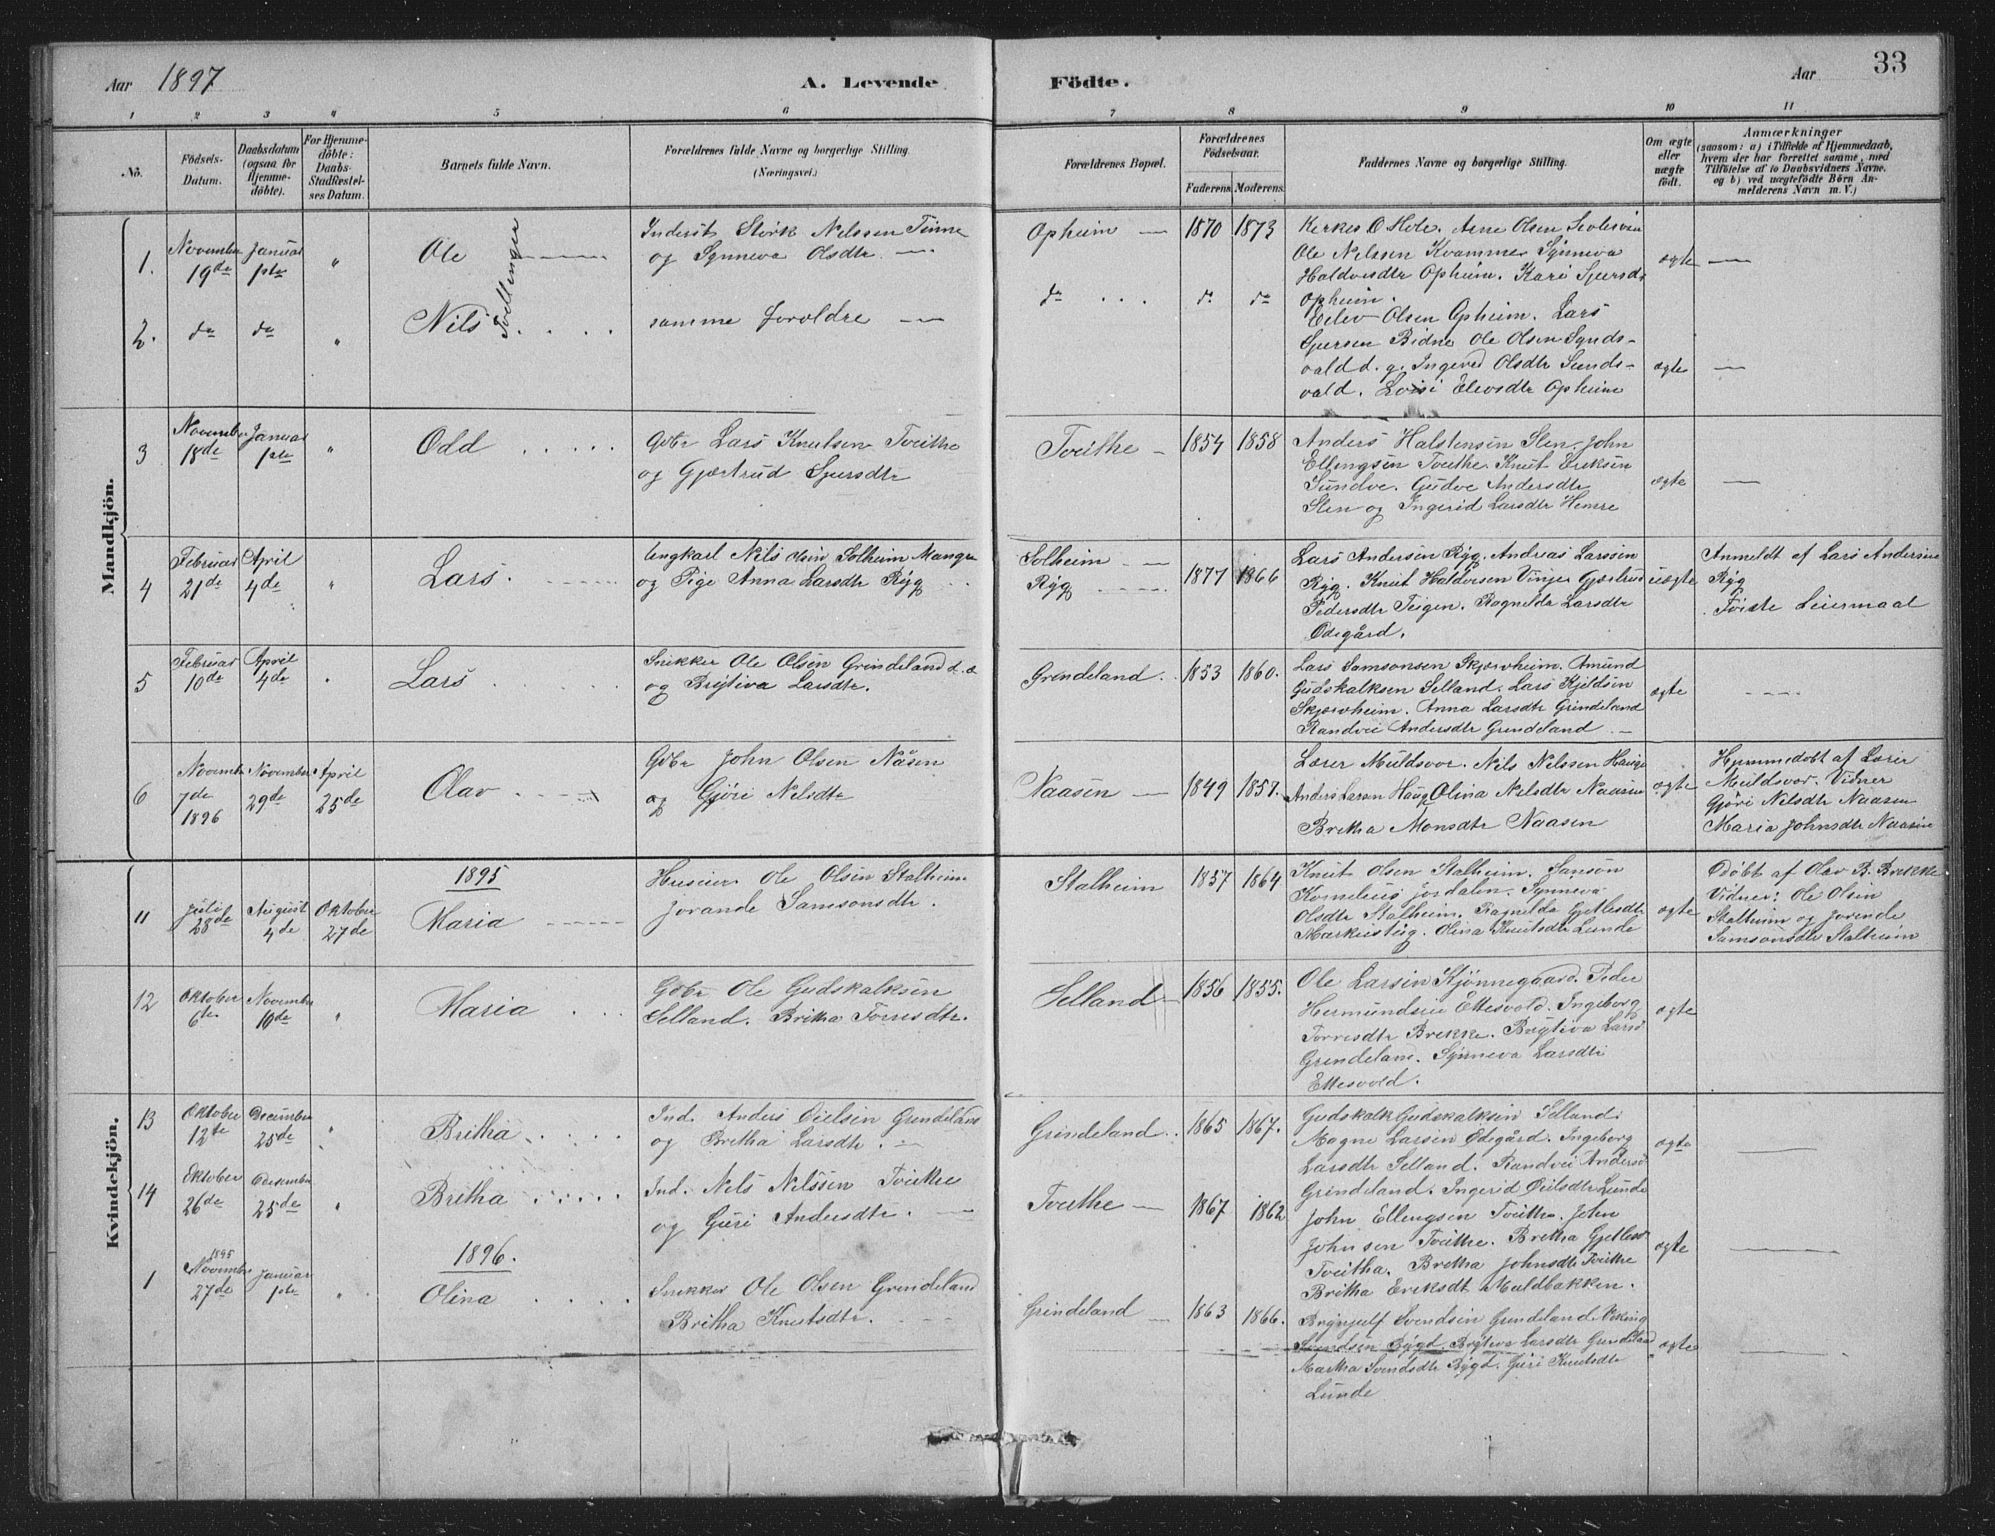 Aar 1897 A. Levende Födte. Aar 33
1 2 3 4 5 6 7 8 9 10 11
No.
Födsels-Datum.
Daabsdatum (ogsaa for Hjemmedöbte).
For Hjemmedöbte: Daabs-Stadfæstelses Datum.
Barnets fulde Navn.
Forældrenes fulde Navne og borgerlige Stilling (Næringsvei.)
Forældrenes Bopæl.
Forældrenes Födselsaar.
Faderens. Moderens.
Faddernes Navne og borgerlige Stilling.
Om ægte eller uægte födt.
Anmærkninger
(saasom: a) i Tilfælde af Hjemmedaab,
hvem der har forrettet samme, med
Tilföielse af to Daabsvidners Navne,
og b) ved uægtefödte Börn An-
melderens Navn m. V.)
Mandkjön.
1. November 19de Januar 1ste " Ole Tvillinger
Inderst Störk Nilssen Tinne
og Synneva Olsdtr.
Opheim 1870 1873
Ole Nilssen Kvamme Synneva
Haldvesdtr Opheim. Kari Sjursdt
Opheim.
ægte
2. do do " Nils
samme foroldre
do do do
Eilev Olsen Opheim. Lars
Sjursen Bidne Ole Olsen Sunds-
vald d. y. Ingeved Olsdtr Sunds-
vald. Eleusdtr Opheim
ægte
3 November 18de Januar 1ste " Odd
Gbr Lars Knutsen Tveithe
og Gjærtrud Sjursdtr
Tveithe 1854 1858
Anders Halstensen Slen John
Ellengsen Tveithe Knut Eriksen
Sundve. Gudve Andersdtr
Slen og Ingerid Larsdtr Hemre
ægte
4 Februar 21de April 4de " Lars.
Ungkarl Nils Olsen Solheim Mangr
og Pige Anna Larsdtr Ryg
Solheim
Ryg
1877 1866
Lars Andersen Ryg. Andreas Larssen
Ryg. Knut Haldvesen Vinje Gjertrud
Pedersdtr Teigen. Ragnilda Larsdtr
Ødegård.
uægte
Anmeldt af Lars Andersen
Ryg
Föiste Leiermaal
5 Februar 10de April 4de " Lars
Snikker Ole Olsen Grindeland d. æ
og Brytiva Larsdtr.
Grendeland 1853 1860.
Lars Samsonsen Skjærvheim. Amund
Gudskalksen Selland. Lars Kjeldsen
Skjærvheim. Anna Larsdtr Grindeland
Randvei Andersdtr Grendeland
ægte
6 November 7de 1896 November 29de April 25de Olav
Gbr John Olsen Nåsen
og Gjöri Nelsdtr
Naasen 1849 1857.
Lærer Muldsvor. Nils Nelssen Haug
Anders Larsen Haug Olina Nelsdtr Naasen
Bretha Monsdtr Naasen
ægte
Hjemmedöbt af Lærer
Muldsvor. Vidner
Gjöri Nilsdtr Naasen
Maria Johnsdtr Naasen
Kvindekjön.
1895
11 Juli 28de August 4de Oktober 27de Maria
Huseier Ole Olsen Stalheim
Jorande Samsonsdtr.
Stalheim 1857 1864
Knut Olsen Stalheim. Samson
Kornelius Jordalen. Synneva
Olsdtr Stalheim. Ragnelda Gjetlesdtr
Olina Knutsdtr Lunde
ægte
Döbt af Olav B. Brekke
Vidner: Ole Olsen
Stalheim og Jorende
Samsonsdtr Stalheim
12 Oktober 6te November 10de " Maria
Gbr Ole Gudskalksen
Selland. Britha Torresdtr.
Selland 1856 1855.
Ole Larsen Skjönnegaard. Peder
Hermundsen Ettesvold. Ingeborg
Torresdtr Brekke. Brytiva Larsd
Grendelan. Synneva Larsdtr
Ettesvold.
ægte
13 Oktober 12te December 25de " Britha
Ind. Anders Oielsen Grendeland
og Bretha Larsdtr.
Grindeland 1865 1867.
Gudskalk Gudskalksen Selland.
Magne Larsen Ødegård. Ingeborg
Larsdtr Selland. Randvei Andersd
Grindeland. Ingerid Oeilsdtr Lunde
ægte
14 Oktober 26de Desember 25de " Britha
Ind. Nels Nilssen Tveithe
og Guri Andersdtr.
Tveithe 1867 1862
John Ellengsen Tveithe. John
Johnsen Tveithe. Bretha Gjetlesd
Tveitha. Bretha Johnsdtr Tveithe
Britha Eriksdt Muldbakken.
ægte
1896.
1 1895 November 27de Januar 1ste " Olina
Snikker Ole Olsen Grendeland
Britha Knutsdtr.
Grindeland 1863 1866.
Brynjulf Svendsen Grendeland. Viking
Svendsen Bygd. Brytiva Larsdtr Grendeland
Martha Svendsdtr Bygd. Guri Knutsdtr
Lunde
ægte